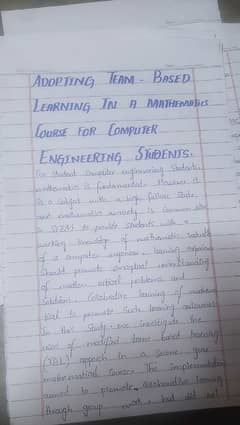 ADOPTING TEAM-BASED
LEARNING IN A MATHEMATICS
COURSE FOR COMPUTER
ENGINEERING STUDENTS.
For student computer engineering students
mathematics is fundamental. However it
is a subject with a high failure
and mathematics anxiety is common also
to provide students with a
working knowledge of mathematics
of a computer engineer, learning
should promote conceptual understanding
of mathematical problems and
solutions. Collaborative learning of
tend to promote such learning outcomes
In this study we investigate the
uses of modified team based learning
(TBL) in a
mathematical course. The implementation
aimed to promote collaborative learning
through group work, but did not